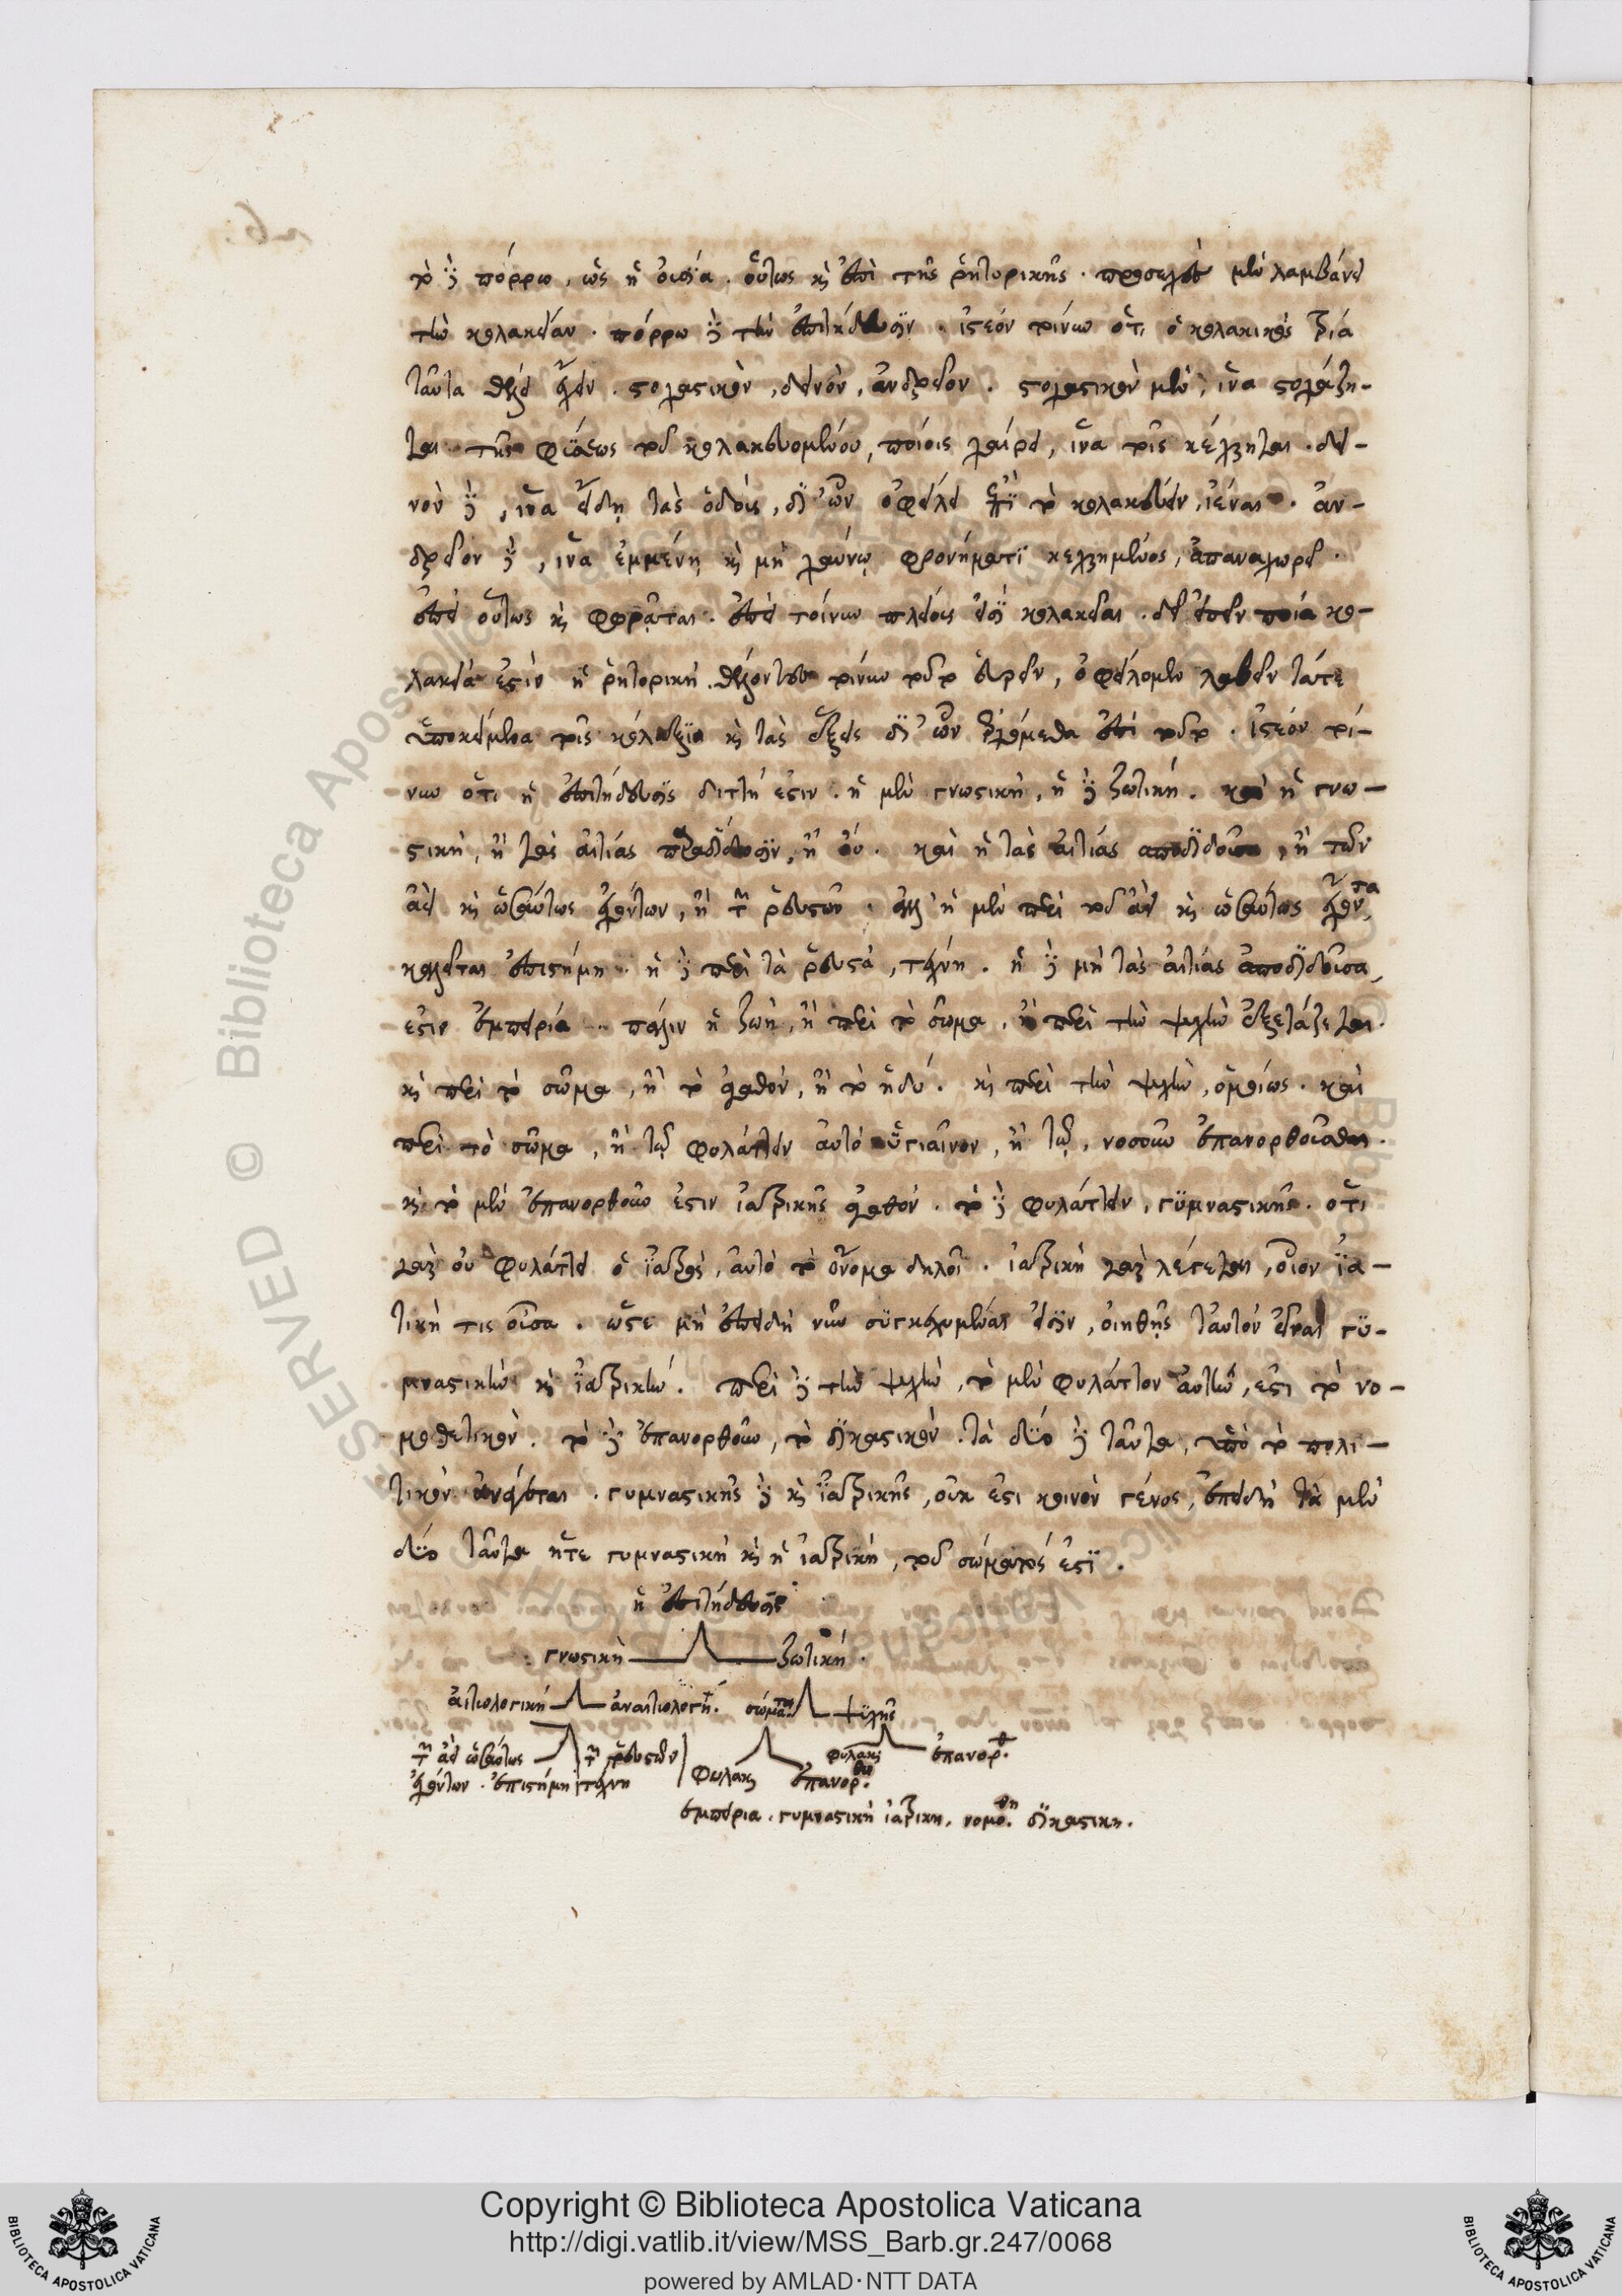 τὸ δὲ πόρρω, ὡς ἡ οὐσία. οὕτως καὶ ἐπὶ τῆς ῥητορικῆς. προσεχὲς μὲν λαμβάνει
τὴν κολακείαν. πόρρω δὲ τὴν ἐπιτήδευσιν. ἰστέον τοίνυν ὅτι ὁ κολακικὸς τρία
ταῦτα θέλει ἔχειν. στοχαστικὸν, δεινὸν, ἀνδρεῖον. στοχαστικὸν μὲν, ἵνα στοχάζη-
ται τῆς φύσεως τοῦ κολακευομένου, ποίοις χαίρει, ἵνα τοῖς κέχρηται. δει-
νὸν δὲ, ἵνα εἴδη τὰς ὁδοὺς, δι' ὧν ὀφείλει ἐπὶ τὸ κολακεύειν ἰέναι. ἀν-
δρεῖον δὲ, ἵνα ἐμμένη καὶ μὴ χαύνῳ φρονήματι κεχρημένος, ἀπαναχωρεῖ.
ἐπεὶ οὕτως καὶ φωρᾶται. ἐπεὶ τοίνυν πλείους εἰσὶ κολακεῖαι. δεῖ εἰπεῖν ποία κο-
λακεία ἐστὶν ἡ ῥητορική. θέλοντες τοίνυν τοῦτο εὑρεῖν, ὀφείλομεν λαβεῖν τά τε
ὑποκείμενα τοῖς κόλαξι καὶ τὰς ἕξεις δι' ὧν ἐρχόμεθα ἐπὶ τοῦτο. ἰστέον τοί-
νυν ὅτι ἡ ἐπιτήδευσις διττή ἐστιν. ἡ μὲν γνωστικὴ, ἡ δὲ ζωτική. καὶ ἡ γνω-
στικὴ, ἢ τὰς αἰτίας παραδίδωσιν, ἢ οὔ. καὶ ἡ τὰς αἰτίας ἀποδιδοῦσα, ἢ τῶν
ἀεὶ καὶ ὡσαύτως ἐχόντων, ἢ τῶν ῥευστῶν. ἀλλ' ἡ μὲν περὶ τοῦ ἀεὶ καὶ ὡσαύτως ἔχοντα
καλεῖται ἐπιστήμη. ἡ δὲ περὶ τὰ ῥευστὰ, τέχνη. ἡ δὲ μὴ τὰς αἰτίας ἀποδιδοῦσα,
ἐστιν ἐμπειρία. πάλιν ἡ ζωὴ, ἢ περὶ τὸ σῶμα, ἢ περὶ τὴν ψυχὴν ἐξετάζεται.
καὶ περὶ τὸ σῶμα, ἢ τὸ ἀγαθὸν, ἢ τὸ ἡδύ. καὶ περὶ τὴν ψυχὴν, ὁμοίως. καὶ
περὶ τὸ σῶμα, ἢ τῷ φυλάττειν αὐτὸ ὑγιαῖνον, ἢ τῷ, νοσοῦν ἐπανορθοῦσθαι.
καὶ τὸ μὲν ἐπανορθοῦν ἐστιν ἰατρικῆς ἀγαθόν. τὸ δὲ φυλάττειν, γυμναστικῆς. ὅτι
γὰρ οὐ φυλάττει ὁ ἰατρὸς, αὐτὸ τὸ ὄνομα δηλοῖ. ἰατρικὴ γὰρ λέγεται, οἷον ἰα-
τική τις οὖσα. ὥστε μὴ ἐπειδὴ νῦν συγκεχυμέναι εἰσὶν, οἰηθῇς ταὐτὸν εἶναι γυ-
μναστικὴν καὶ ἰατρικήν. περὶ δὲ τὴν ψυχὴν, τὸ μὲν φυλάττον αὐτὴν, ἐστὶ τὸ νο-
μοθετικὸν. τὸ δὲ ἐπανορθοῦν, τὸ δικαστικόν. τὰ δύο δὲ ταῦτα, ὑπὸ τὸ πολι-
τικὸν ἀνάγεται. γυμναστικῆς δὲ καὶ ἰατρικῆς, οὐκ ἔστι κοινὸν γένος, ἐπειδὴ τὰ μὲν
δύο ταῦτα ἥτε γυμναστικὴ καὶ ἡ ἰατρικὴ, τοῦ σώματός ἐστι.
ἡ ἐπιτήδευσις
γνωστικὴ ζωτική.
αἰτιολογικὴ ἀναιτιολογη. σώματος ψυχῆς
τῶν ἀεὶ ὡσαύτως τῶν ῥευστῶν φυλακὴ ἐπανορθ.
ἐχόντων. ἐπιστήμη τέχνη φυλακὴ ἐπανορθω.
ἐμπειρια. γυμναστικὴ ἰατρικη. νομοθη. δικαστικη.
Copyright © Biblioteca Apostolica Vaticana
http://digi.vatlib.it/view/MSS_Barb.gr.247/0068
powered by AMLAD·NTT DATA
BIBLIOTECA APOSTOLICA VATICANA
BIBLIOTECA APOSTOLICA VATICANA